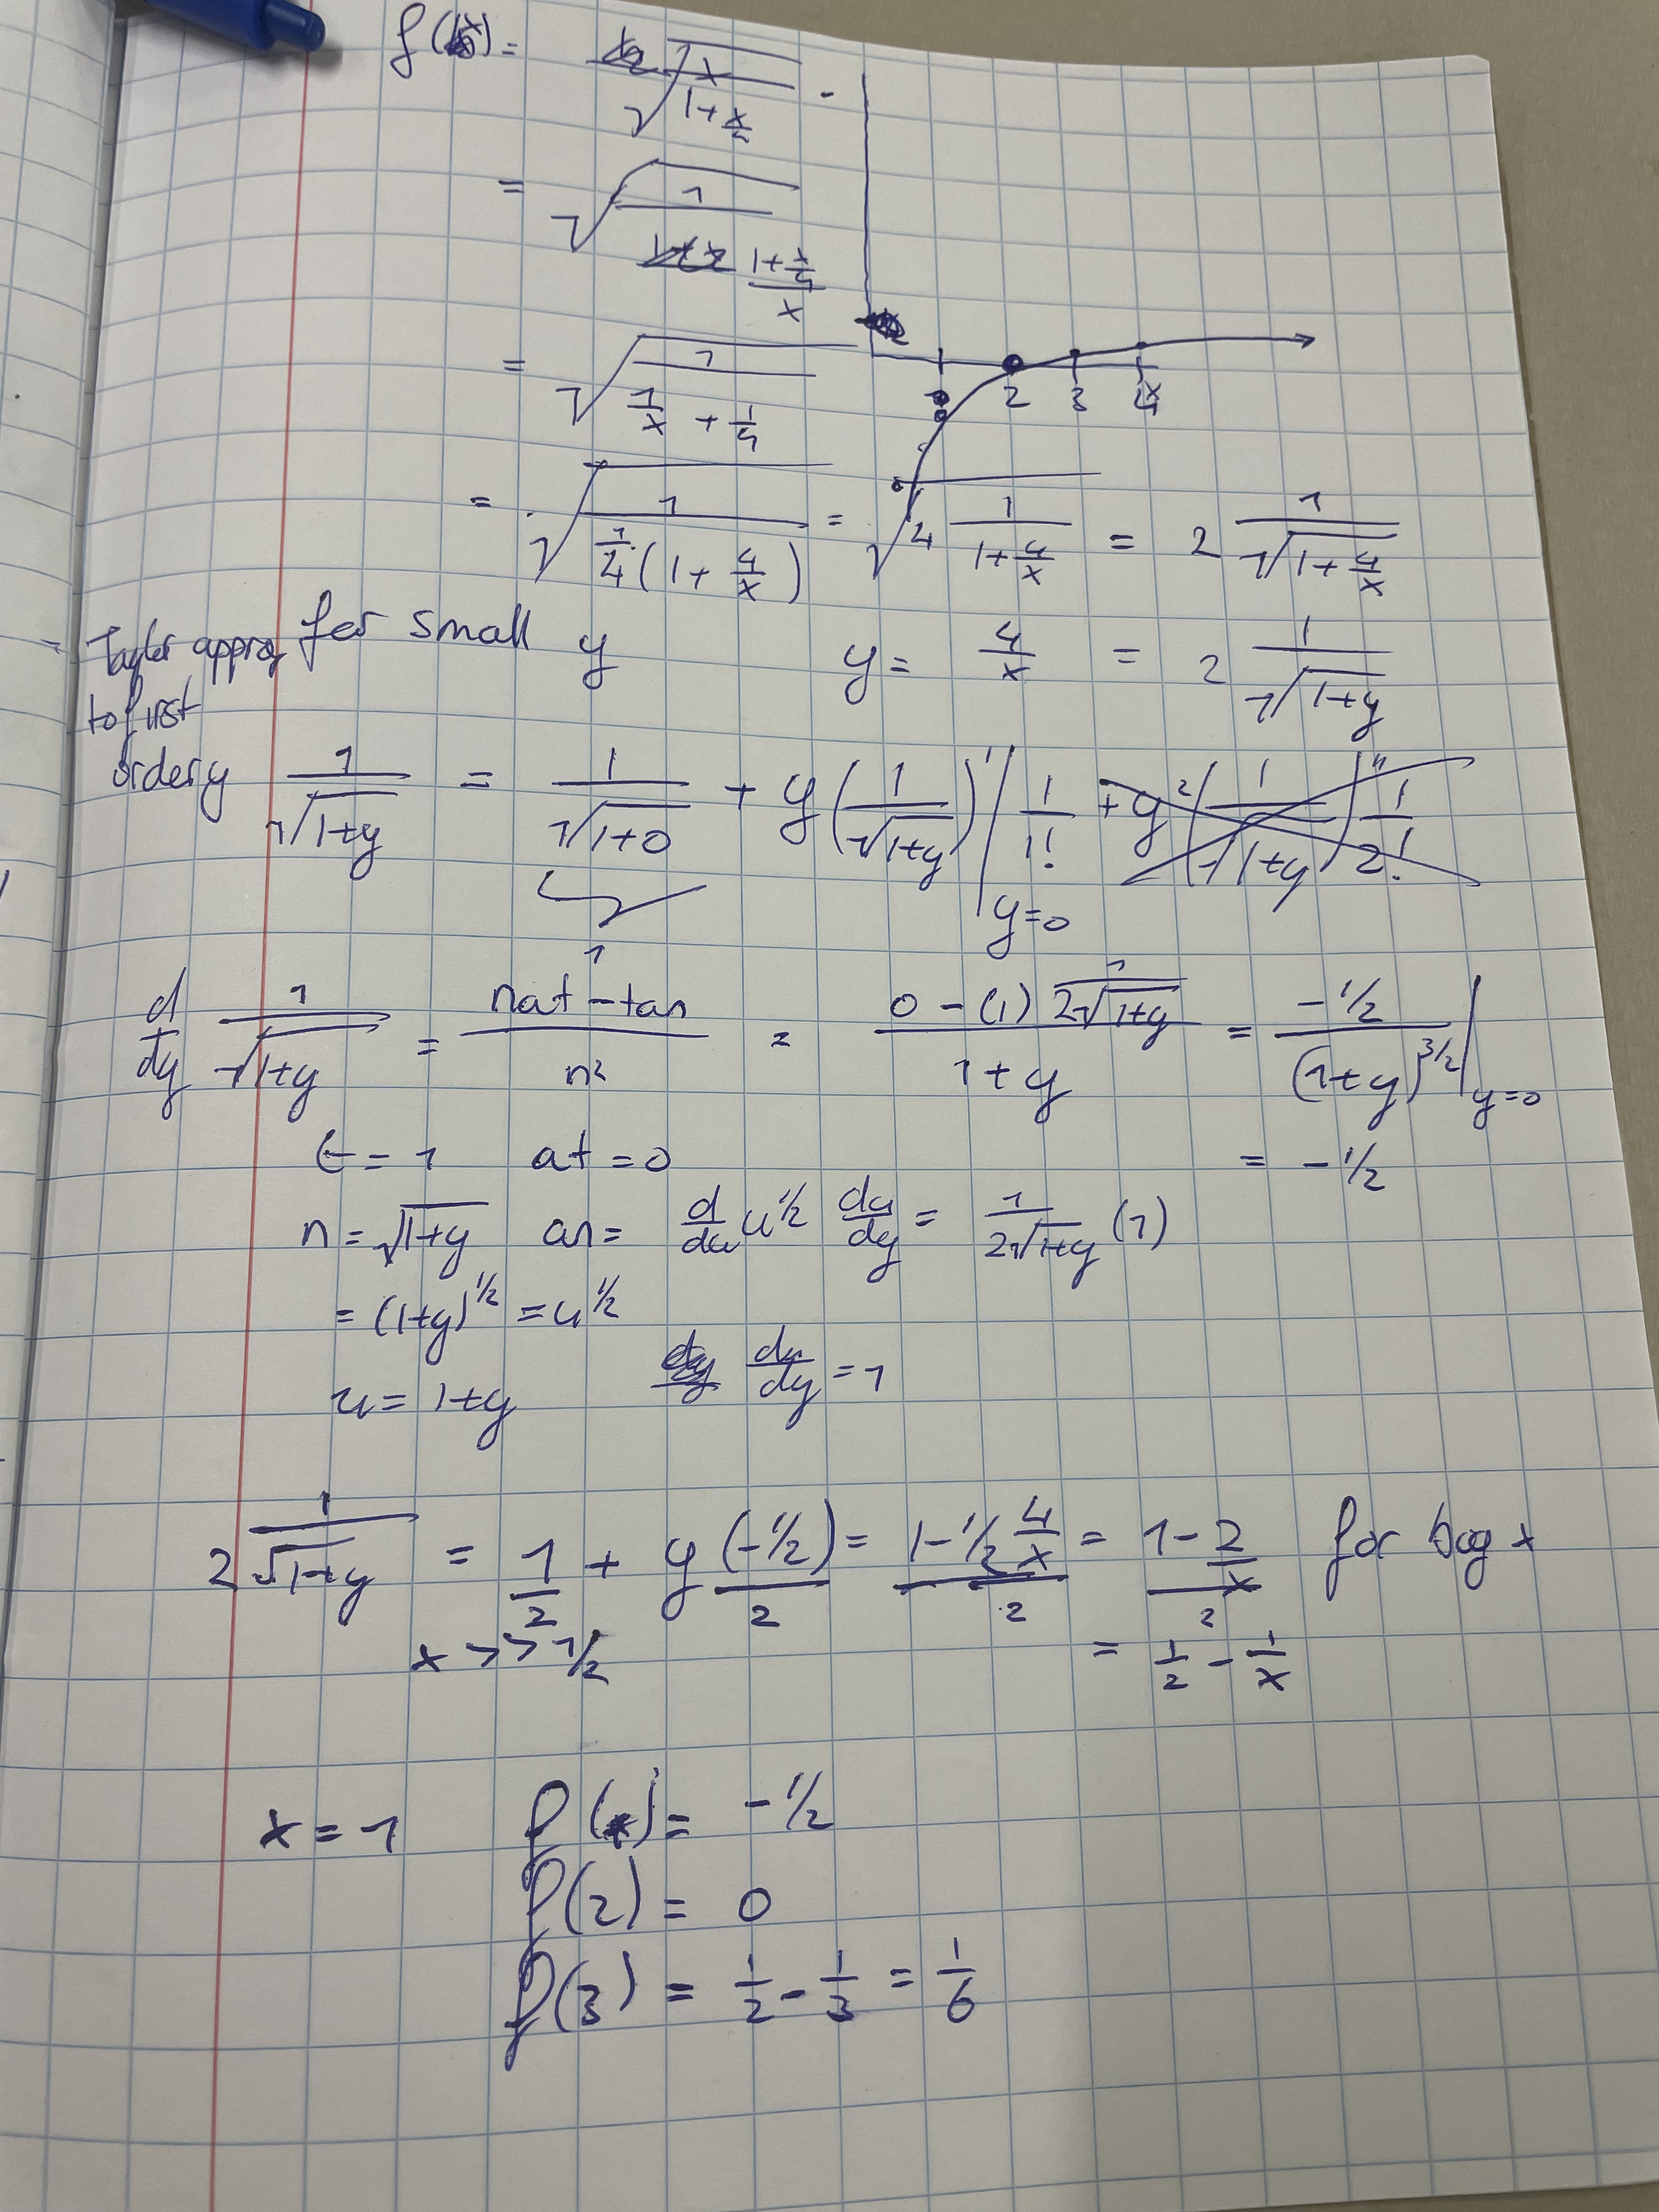 f(x) = √(x/(1+x/4))
= √(1/((1+x/4)/x))
= √(1/(1/x + 1/4))
2 3 4 x
= √(1/(1/4(1+4/x))) = √(4 1/(1+4/x)) = 2 1/√(1+4/x)
- Taylor approx for small y y = 4/x = 2 1/√(1+y)
to first
order y 1/√(1+y) = 1/√(1+0) + y(1/√(1+y))'|y=0 1/1! + y²(1/√(1+y))'' 1/2!
1
d/dy 1/√(1+y) = (nat - tan)/n² = (0 - (1) 1/(2√(1+y)))/(1+y) = (-1/2)/(1+y)^3/2 |y=0
t = 1 at = 0 = -1/2
n = √(1+y) an = d/du u^1/2 du/dy = 1/(2√(1+y)) (1)
= (1+y)^1/2 = u^1/2
u = 1+y du/dy = 1
2 1/√(1+y) = 1/2 + y (-1/2)/2 = (1 - 1/2 4/x)/2 = (1 - 2/x)/2 for big x
x >> 1/2 = 1/2 - 1/x
x = 1 f(x) = -1/2
f(2) = 0
f(3) = 1/2 - 1/3 = 1/6